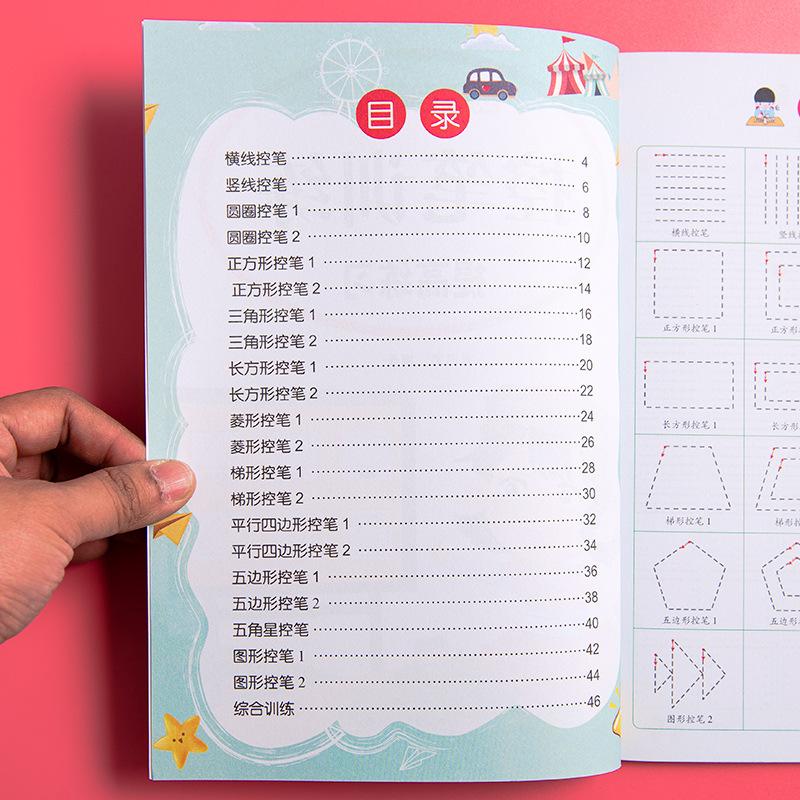 目录
横线控笔 4
竖线控笔 6
圆圈控笔 1 8
圆圈控笔 2 10
正方形控笔 1 12
正方形控笔 2 14
三角形控笔 1 16
三角形控笔 2 18
长方形控笔 1 20
长方形控笔 2 22
菱形控笔 1 24
菱形控笔 2 26
梯形控笔 1 28
梯形控笔 2 30
平行四边形控笔 1 32
平行四边形控笔 2 34
五边形控笔 1 36
五边形控笔 2 38
五角星控笔 40
图形控笔 1 42
图形控笔 2 44
综合训练 46
横线控笔
竖线控
正方形控笔 1
正方形
长方形控笔 1
长方形控
梯形控笔 1
梯形控
五边形控笔 1
五边形
图形控笔 2